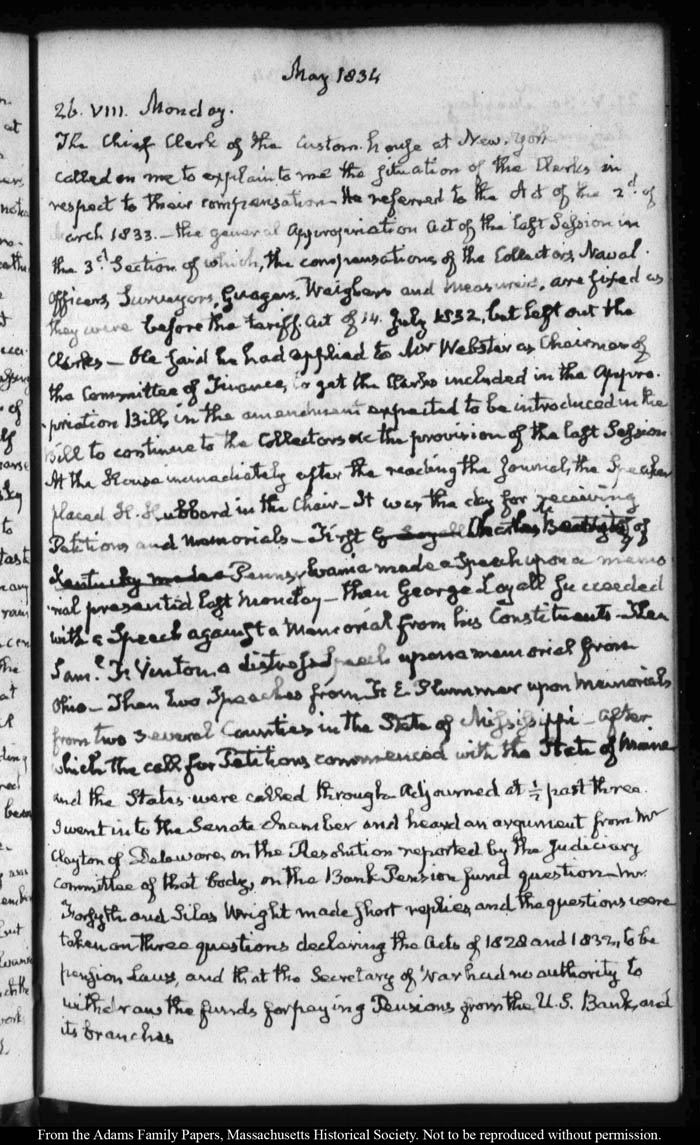 May 1834
26. VIII. Monday.
The Chief Clerk of the Custom-house at New-York
called on me to explain to me the situation of the Clerks in
respect to their compensation — He referred to the Act of the 2d. of
arch 1833. — the general Appropriation Act of the last Session in
the 3d. Section of which, the compensations of the Collectors, Naval
Officers, Surveyors, Guagers, Weighers and measurers, are fixed as
they were before the tariff Act of 14. July 1832, but left out the
Clerks — He said he had applied to Mr Webster as Chairman of
the Committee of Finance, to get the Clerks included in the Appro-
priation Bill, in the amendment expected to be introduced in the
Bill to continue to the Collectors &c the provision of the last Session
At the House immediately after the reading the Journal, the Speaker
placed H. Hubbard in the Chair — It was the day for receiving
Petitions and Memorials — First of
Kentucky made a Pennsylvania made a Speech upon a memo-
rial presented last Monday — then George Loyall succeeded
with a Speech against a Memorial from his Constituents — Then
Saml. F. Vinton, a distress Speech upon a memorial from
Ohio — Then two Speeches from F. E. Plummer upon Memorials
from two several Counties in the State of Mississippi — after
which the call for Petitions commenced with the State of Maine
and the States were called through — Adjourned at ½ past three.
I went into the Senate chamber and heard an argument from Mr
Clayton of Delaware, on the Resolution reported by the Judiciary
Committee of that body, on the Bank Pension fund question — Mr.
Forsyth and Silas Wright made short replies, and the questions were
taken on three questions declaring the Acts of 1828 and 1832, to be
pension Laws, and that the Secretary of War had no authority to
withdraw the funds for paying Pensions from the U.S. Bank, and
its branches
From the Adams Family Papers, Massachusetts Historical Society. Not to be reproduced without permission.